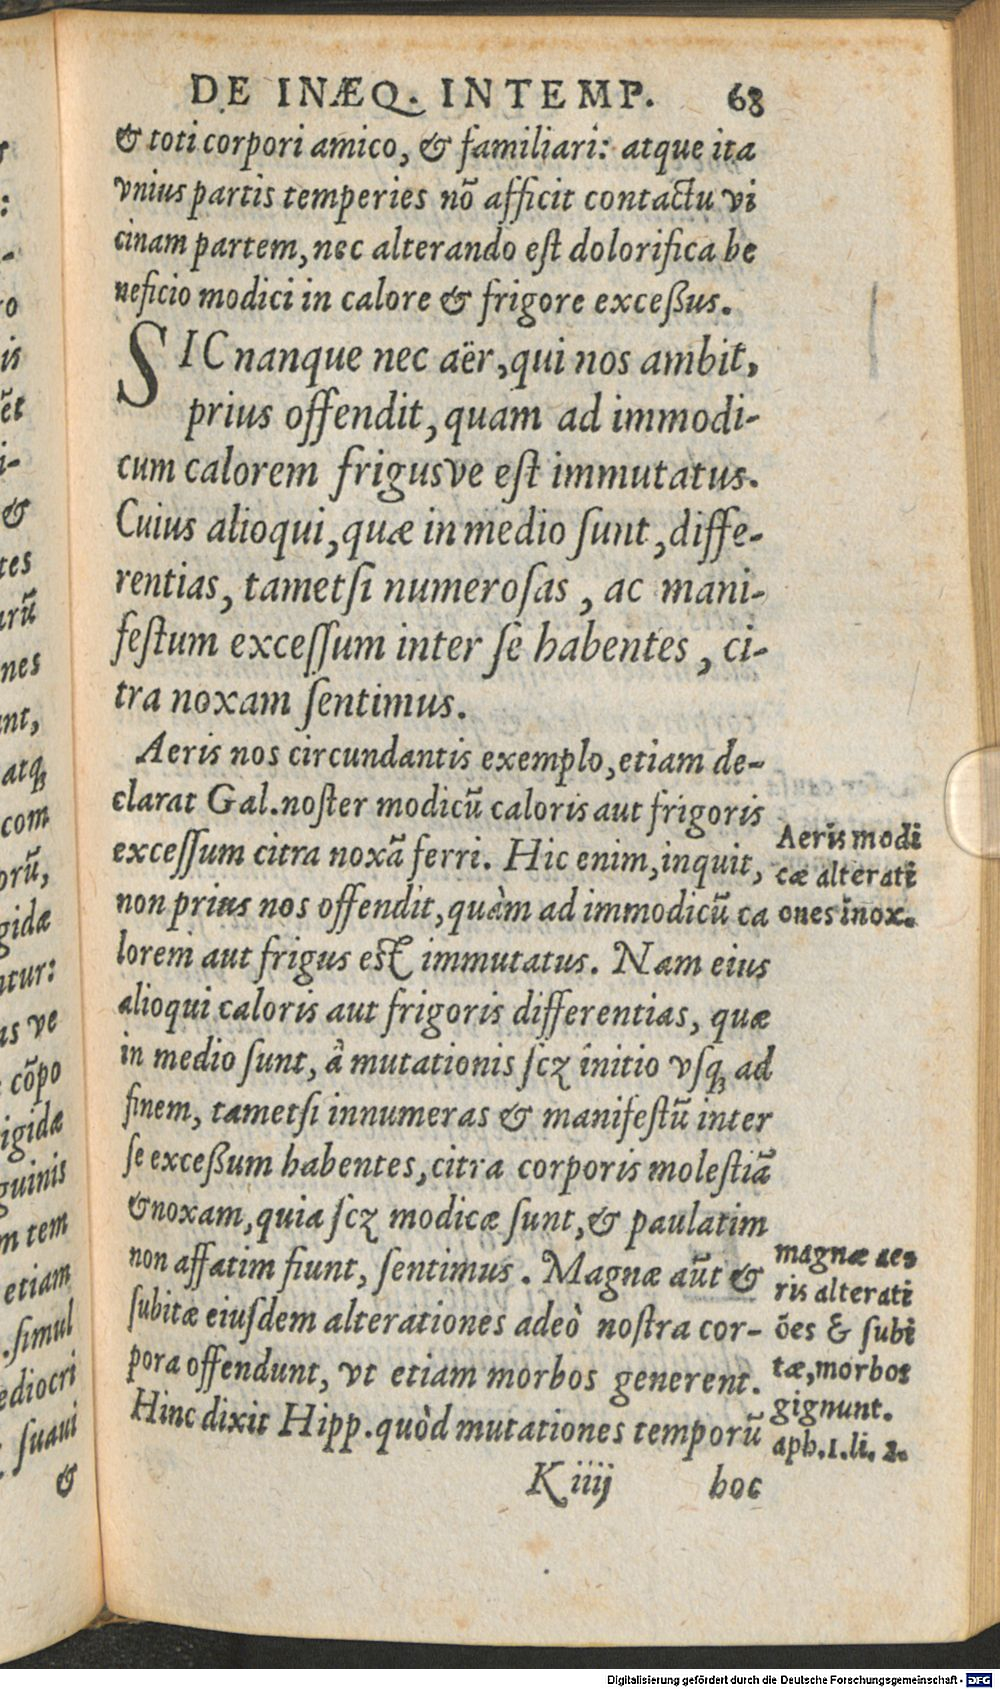 DE INÆQ. INTEMP. 68
& toti corpori amico, & familiari: atque ita
vnius partis temperies nõ afficit contactu vi
cinam partem, nec alterando est dolorifica be
neficio modici in calore & frigore exceßus.
SIC nanque nec aër, qui nos ambit,
prius offendit, quam ad immodi-
cum calorem frigusve est immutatus.
Cuius alioqui, quæ in medio sunt, diffe-
rentias, tametsi numerosas, ac mani-
festum excessum inter se habentes, ci-
tra noxam sentimus.
Aeris nos circundantis exemplo, etiam de-
clarat Gal. noster modicũ caloris aut frigoris
excessum citra noxã ferri. Hic enim, inquit,
non prius nos offendit, quàm ad immodicũ ca
lorem aut frigus est immutatus. Nam eius
alioqui caloris aut frigoris differentias, quæ
in medio sunt, â mutationis scz initio vsq; ad
finem, tametsi innumeras & manifestũ inter
se exceßum habentes, citra corporis molestiã
& noxam, quia scz modicæ sunt, & paulatim
non affatim fiunt, sentimus. Magnæ aũt &
subitæ eiusdem alterationes adeò nostra cor-
pora offendunt, vt etiam morbos generent.
Hinc dixit Hipp. quòd mutationes temporũ
K iiij hoc
Aeris modi
cæ alterati
ones inox.
magnæ ae-
ris alterati
ões & subi
tæ, morbos
gignunt.
aph. 1. li. 2.
s
:
-
ro
is
ẽt
i-
&
tes
arũ
nes
nt,
atq;
com
orũ,
gidæ
ntur:
as ve
cõpo
igidæ
guinis
m tem
etiam
. simul
ediocri
suaui
&
Digitalisierung gefördert durch die Deutsche Forschungsgemeinschaft - DFG